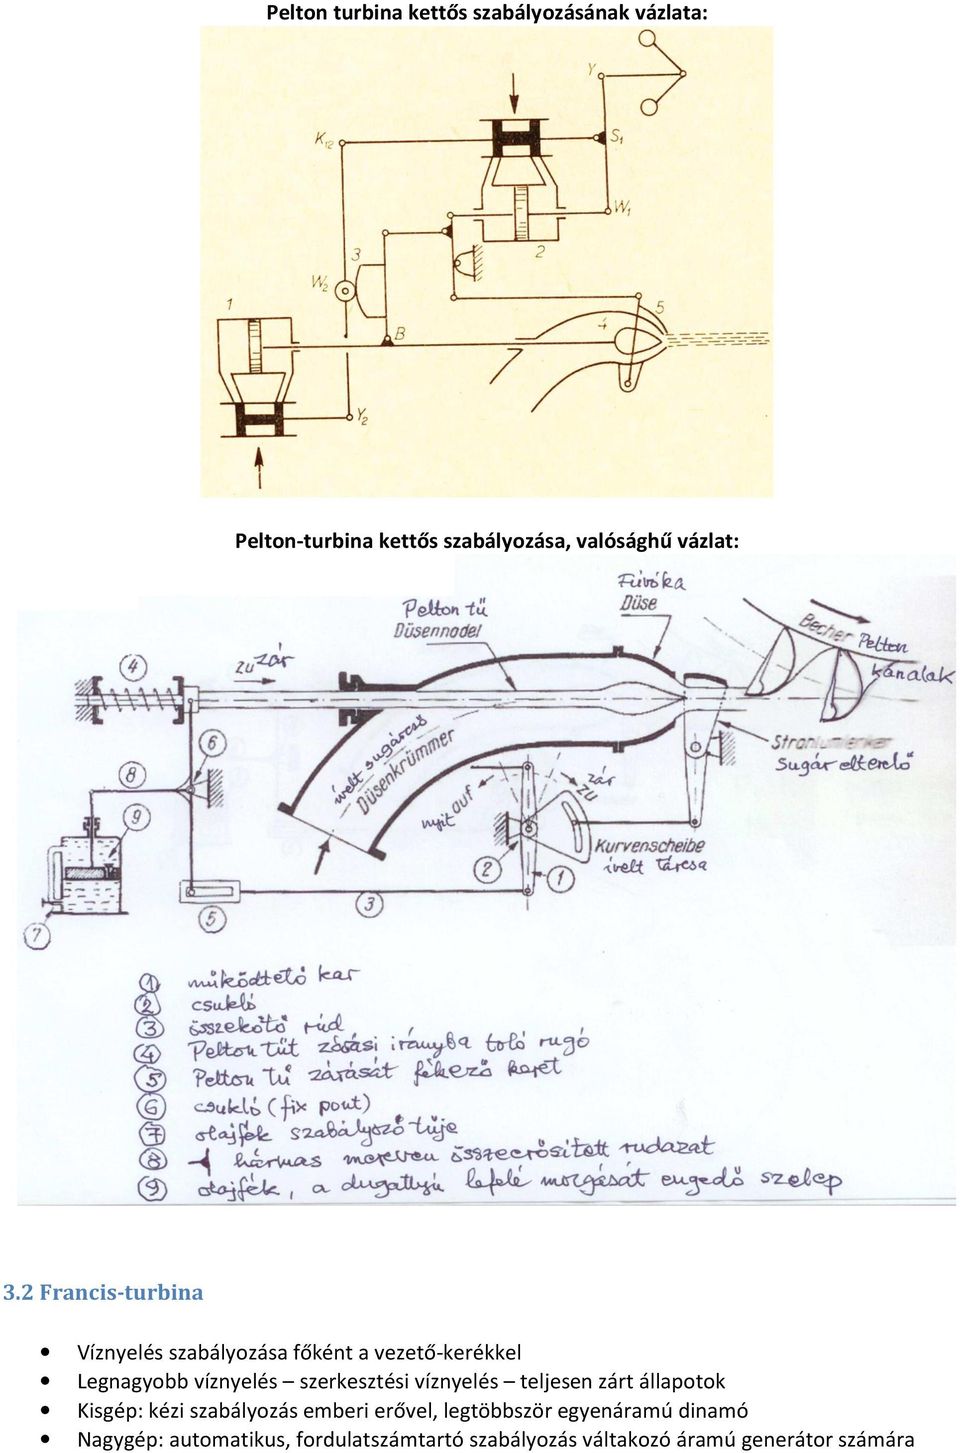 Pelton turbina kettős szabályozásának vázlata:
Y
K12
S1
W1
3
2
W2
1
5
4
B
Y2
Pelton-turbina kettős szabályozása, valósághű vázlat:
Fúvóka
Düse
Pelton tű
Düsennadel
Becher
Pelton
kanalak
4
zu zár
Strahlumlenker
Sugár elterelő
6
ívelt sugárcső
Düsenkrümmer
8
zár
zu
nyit auf
9
Kurvenscheibe
ívelt tárcsa
2
1
3
5
7
1 működtető kar
2 csukló
3 összekötő rúd
4 Pelton tűt zárási irányba toló rugó
5 Pelton tű zárását fékező keret
6 csukló (fix pont)
7 olajfék szabályozó tűje
8 hármas mereven összeerősített rudazat
9 olajfék, a dugattyú lefelé mozgását engedő szelep
3.2 Francis-turbina
• Víznyelés szabályozása főként a vezető-kerékkel
• Legnagyobb víznyelés – szerkesztési víznyelés – teljesen zárt állapotok
• Kisgép: kézi szabályozás emberi erővel, legtöbbször egyenáramú dinamó
• Nagygép: automatikus, fordulatszámtartó szabályozás váltakozó áramú generátor számára